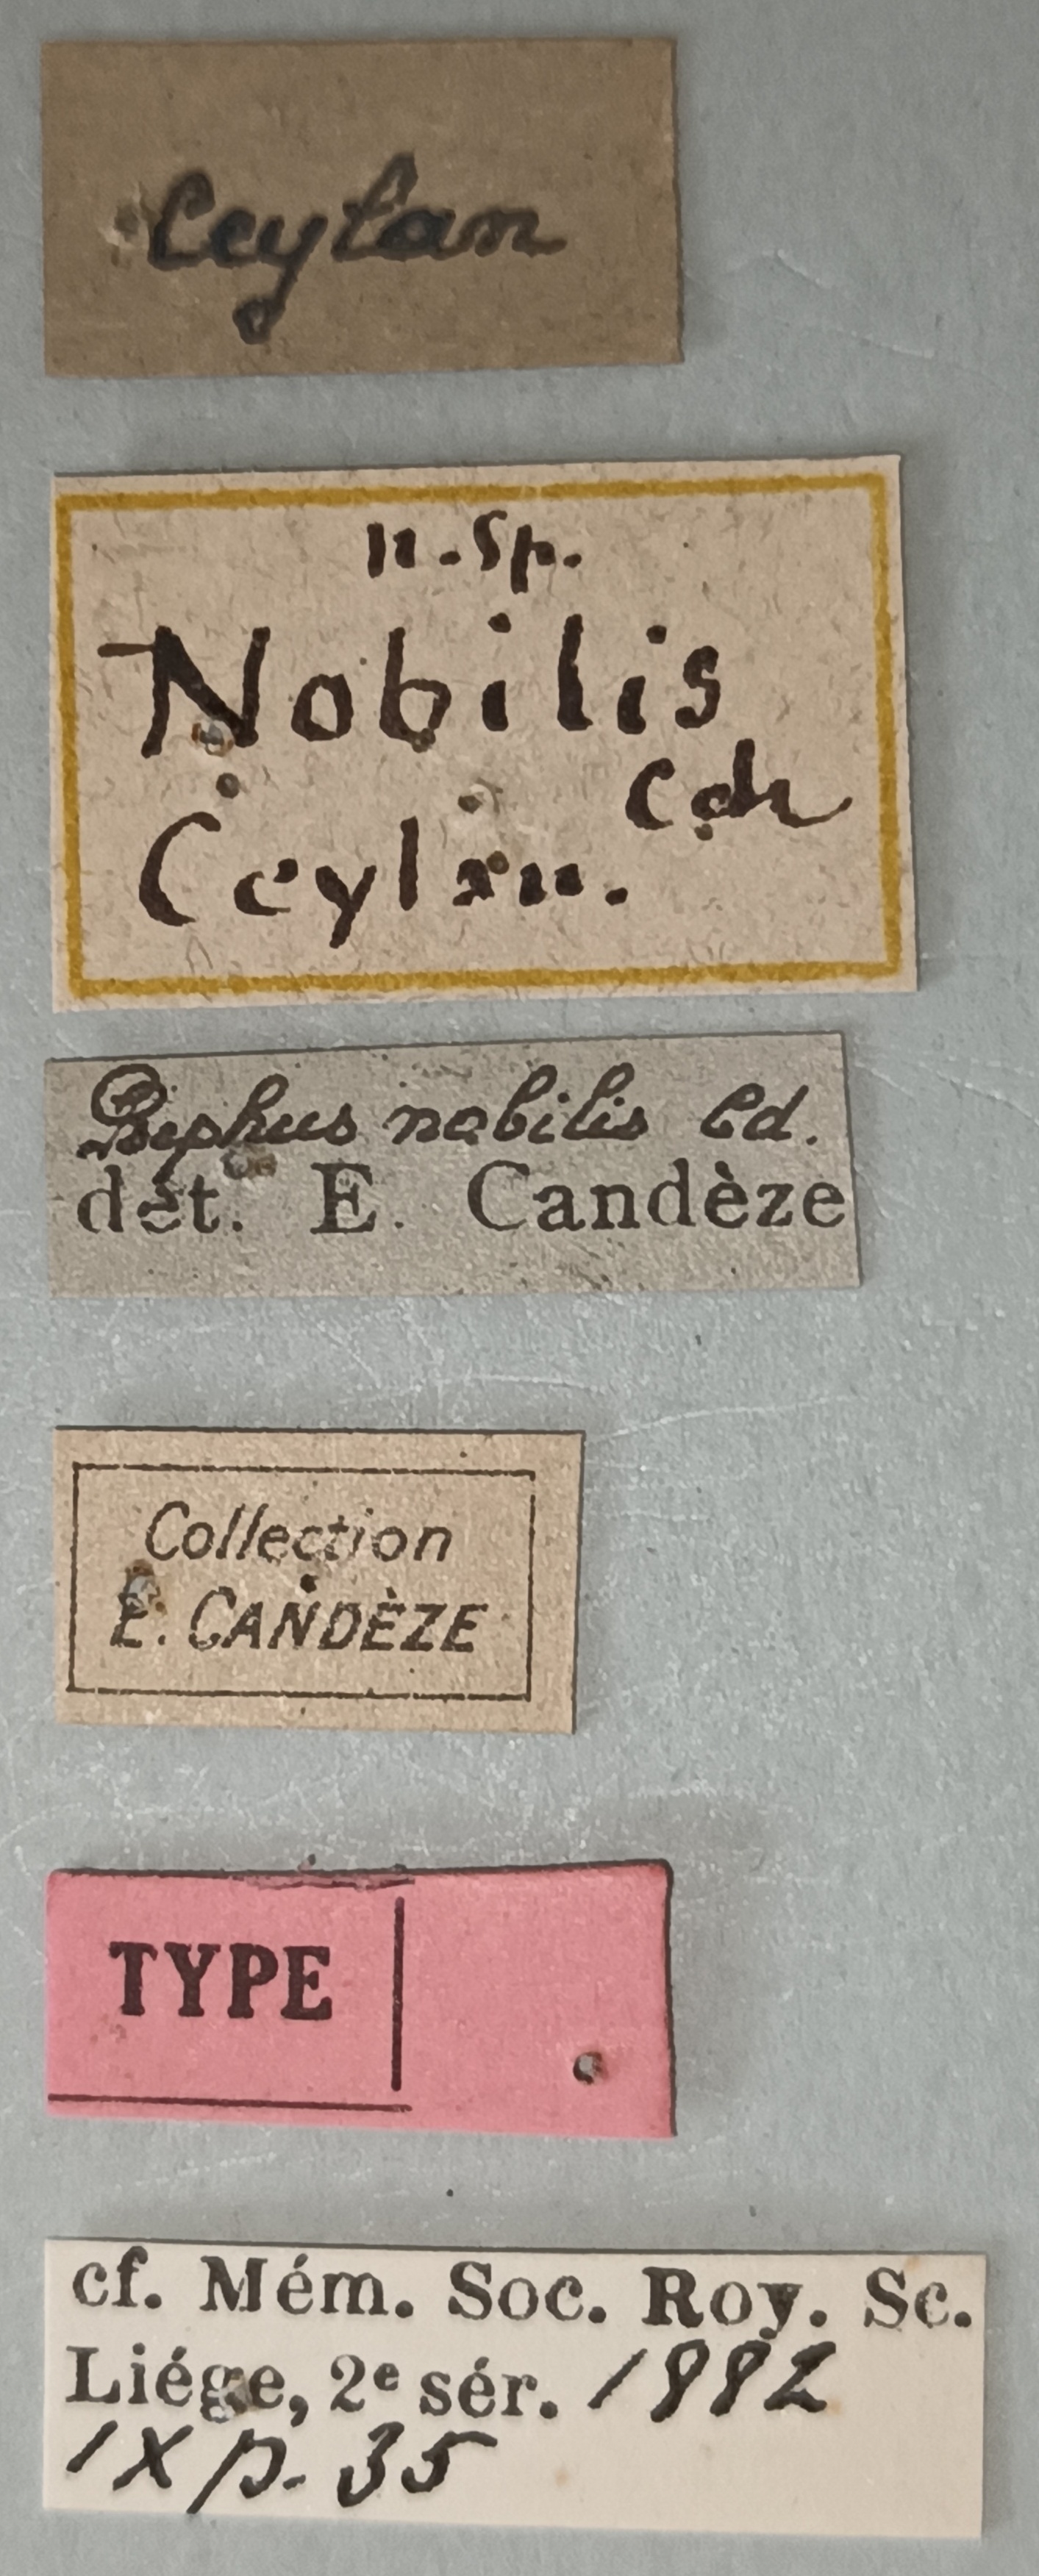 Ceylan
n. sp.
Nobilis
Ceylan.
Psephus nobilis Cd.
dét. E. Candèze
Collection
E. CANDÈZE
TYPE
cf. Mém. Soc. Roy. Sc.
Liége, 2e sér. 1882
IX p. 35